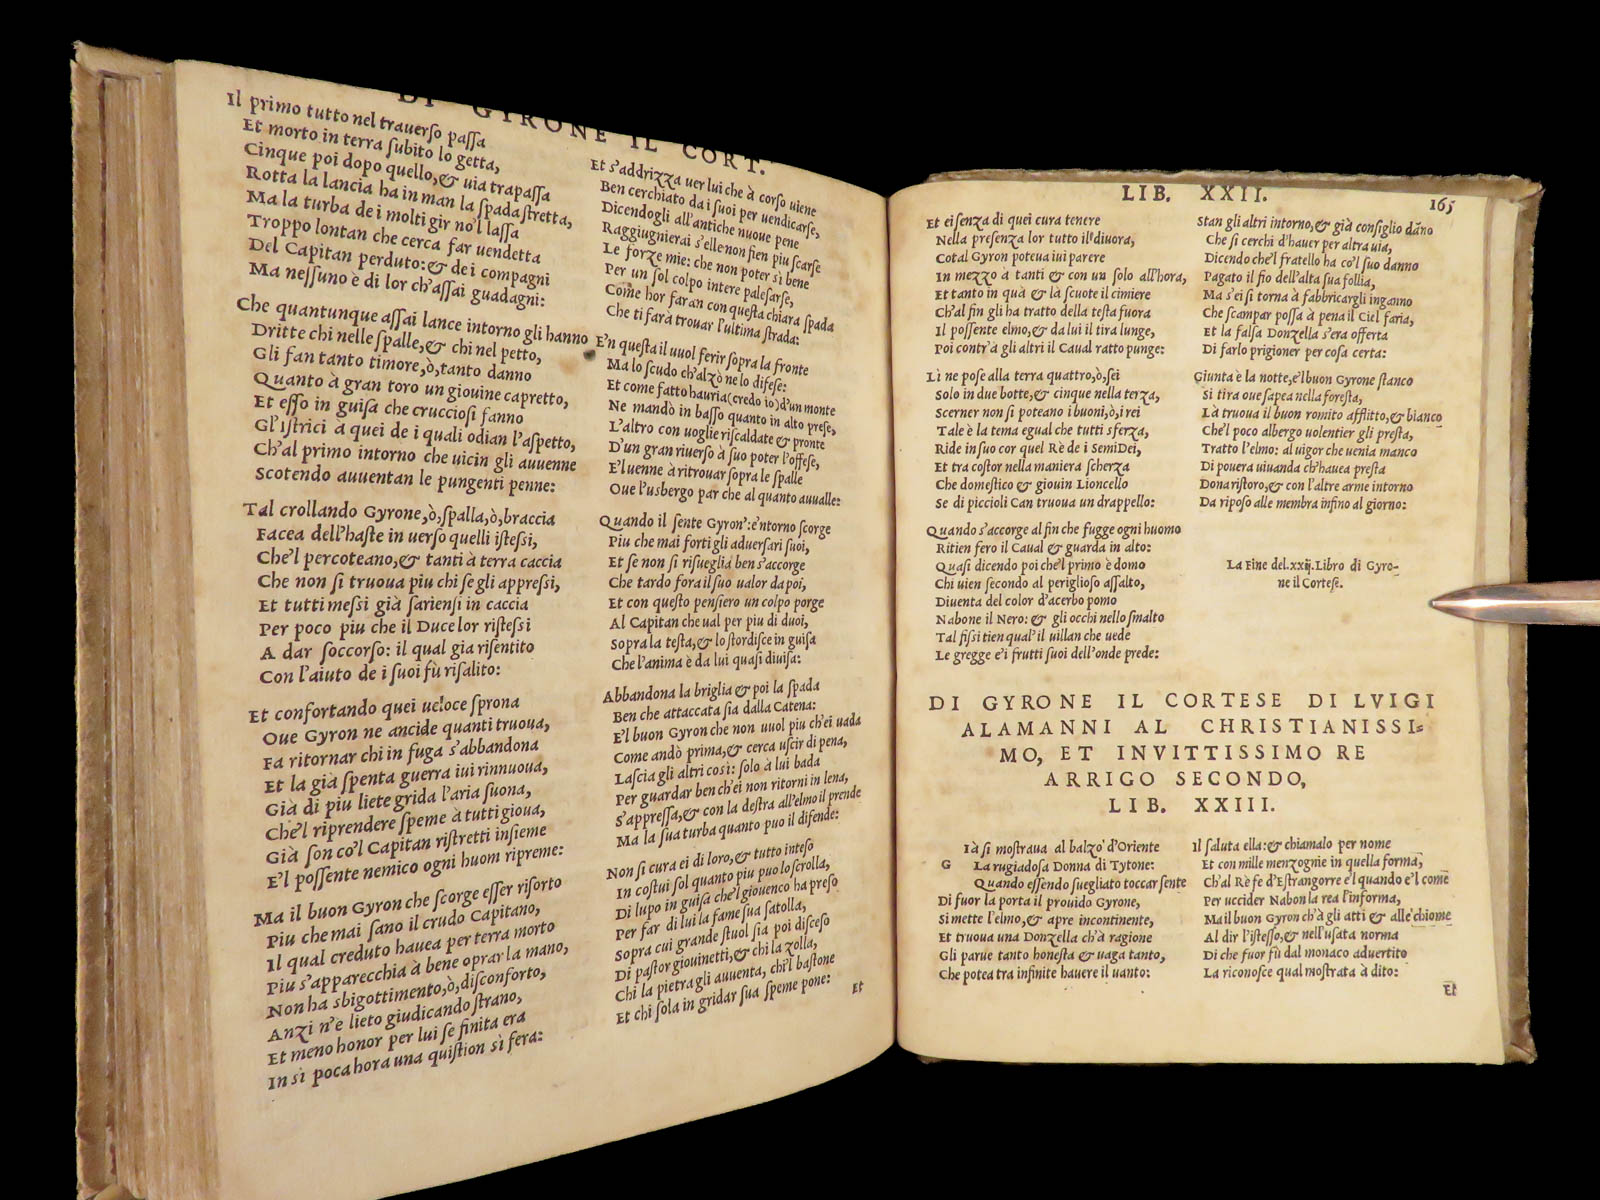 DI GYRONE IL CORT.
Il primo tutto nel trauerſo paſſa
Et morto in terra ſubito lo getta,
Cinque poi dopo quello,& uia trapaſſa
Rotta la lancia ha in man la ſpada ſtretta,
Ma la turba de i molti gir no'l laſſa
Troppo lontan che cerca far uendetta
Del Capitan perduto:& de i compagni
Ma neſſuno è di lor ch'aſſai guadagni:
Che quantunque aſſai lance intorno gli hanno
Dritte chi nelle ſpalle,& chi nel petto,
Gli fan tanto timore,ò,tanto danno
Quanto à gran toro un giouine capretto,
Et eſſo in guiſa che cruccioſi fanno
Gl'Iſtrici à quei de i quali odian l'aſpetto,
Ch'al primo intorno che uicin gli auuenne
Scotendo auuentan le pungenti penne:
Tal crollando Gyrone,ò,ſpalla,ò,braccia
Facea dell'haſte in uerſo quelli iſteſſi,
Che'l percoteano,& tanti à terra caccia
Che non ſi truoua piu chi ſe gli appreſſi,
Et tutti meſſi già ſarienſi in caccia
Per poco piu che il Duce lor riſteſſi
A dar ſoccorſo: il qual gia riſentito
Con l'aiuto de i ſuoi fù riſalito:
Et confortando quei ueloce ſprona
Oue Gyron ne ancide quanti truoua,
Fa ritornar chi in fuga s'abbandona
Et la già ſpenta guerra iui rinnuoua,
Già di piu liete grida l'aria ſuona,
Che'l riprendere ſpeme à tutti gioua,
Già ſon co'l Capitan riſtretti inſieme
E'l poſſente nemico ogni huom ripreme:
Ma il buon Gyron che ſcorge eſſer riſorto
Piu che mai ſano il crudo Capitano,
Il qual creduto hauea per terra morto
Piu s'apparecchia à bene oprar la mano,
Non ha sbigottimento,ò,diſconforto,
Anzi n'è lieto giudicando ſtrano,
Et meno honor per lui ſe finita era
In sì poca hora una quiſtion sì fera:
Et s'addrizza uer lui che à corſo uiene
Ben cerchiato da i ſuoi per uendicarſe,
Dicendogli all'antiche nuoue pene
Raggiugnerai s'elle non fien piu ſcarſe
Le forze mie: che non poter sì bene
Per un ſol colpo intere paleſarſe,
Come hor faran con queſta chiara ſpada
Che ti farà trouar l'ultima ſtrada:
E'n queſta il uuol ferir ſopra la fronte
Ma lo ſcudo ch'alzò ne lo difeſe:
Et come fatto hauria(credo io)d'un monte
Ne mandò in baſſo quanto in alto preſe,
L'altro con uoglie riſcaldate & pronte
D'un gran riuerſo à ſuo poter l'offeſe,
E'l uenne à ritrouar ſopra le ſpalle
Oue l'usbergo par che al quanto auualle:
Quando il ſente Gyron':e'ntorno ſcorge
Piu che mai forti gli aduerſari ſuoi,
Et ſe non ſi riſueglia ben s'accorge
Che tardo fora il ſuo ualor da poi,
Et con queſto penſiero un colpo porge
Al Capitan che ual per piu di duoi,
Sopra la teſta,& lo ſtordiſce in guiſa
Che l'anima è da lui quaſi diuiſa:
Abbandona la briglia & poi la ſpada
Ben che attaccata ſia dalla Catena:
E'l buon Gyron che non uuol piu ch'ei uada
Come andò prima,& cerca uſcir di pena,
Laſcia gli altri così: ſolo à lui bada
Per guardar ben ch'ei non ritorni in lena,
S'appreſſa,& con la deſtra all'elmo il prende
Ma la ſua turba quanto puo il difende:
Non ſi cura ei di loro,& tutto inteſo
In coſtui ſol quanto piu puo lo ſcrolla,
Di lupo in guiſa che'l giouenco ha preſo
Per far di lui la fame ſua ſatolla,
Sopra cui grande ſtuol ſia poi diſceſo
Di paſtor giouinetti,& chi la zolla,
Chi la pietra gli auuenta, chi'l baſtone
Et chi ſola in gridar ſua ſpeme pone:
Et
LIB. XXII.
165
Et ei ſenza di quei cura tenere
Nella preſenza lor tutto il diuora,
Cotal Gyron poteua iui parere
In mezzo à tanti & con un ſolo all'hora,
Et tanto in quà & là ſcuote il cimiere
Ch'al fin gli ha tratto della teſta fuora
Il poſſente elmo,& da lui il tira lunge,
Poi contr'à gli altri il Caual ratto punge:
Lì ne poſe alla terra quattro,ò,ſei
Solo in due botte,& cinque nella terza,
Scerner non ſi poteano i buoni,ò,i rei
Tale è la tema egual che tutti sferza,
Ride in ſuo cor quel Rè de i SemiDei,
Et tra coſtor nella maniera ſcherza
Che domeſtico & giouin Lioncello
Se di piccioli Can truoua un drappello:
Quando s'accorge al fin che fugge ogni huomo
Ritien fero il Caual & guarda in alto:
Quaſi dicendo poi che'l primo è domo
Chi uien ſecondo al periglioſo aſſalto,
Diuenta del color d'acerbo pomo
Nabone il Nero: & gli occhi nello ſmalto
Tal fiſſi tien qual' il uillan che uede
Le gregge e i frutti ſuoi dell'onde prede:
Stan gli altri intorno,& già conſiglio dãno
Che ſi cerchi d'hauer per altra uia,
Dicendo che'l fratello ha co'l ſuo danno
Pagato il fio dell'alta ſua follia,
Ma s'ei ſi torna à fabbricargli inganno
Che ſcampar poſſa à pena il Ciel faria,
Et la falſa Donzella s'era offerta
Di farlo prigioner per coſa certa:
Giunta è la notte,e'l buon Gyrone ſtanco
Si tira oue ſapea nella foreſta,
Là truoua il buon romito afflitto,& bianco
Che'l poco albergo uolentier gli preſta,
Tratto l'elmo: al uigor che uenia manco
Di pouera uiuanda ch'hauea preſta
Dona riſtoro,& con l'altre arme intorno
Da ripoſo alle membra infino al giorno:
La Fine del.xxij.Libro di Gyro-
ne il Corteſe.
DI GYRONE IL CORTESE DI LVIGI
ALAMANNI AL CHRISTIANISSI-
MO, ET INVITTISSIMO RE
ARRIGO SECONDO,
LIB. XXIII.
G Ià ſi moſtraua al balzo d'Oriente
La rugiadoſa Donna di Tytone:
Quando eſſendo ſuegliato toccar ſente
Di fuor la porta il prouido Gyrone,
Si mette l'elmo,& apre incontinente,
Et truoua una Donzella ch'à ragione
Gli parue tanto honeſta & uaga tanto,
Che potea tra infinite hauere il uanto:
Il ſaluta ella:& chiamalo per nome
Et con mille menzognie in quella forma,
Ch'al Rè fe d'Eſtrangorre e'l quando e'l come
Per uccider Nabon la rea l'informa,
Ma il buon Gyron ch'à gli atti & alle chiome
Al dir l'iſteſſo,& nell'uſata norma
Di che fuor fù dal monaco aduertito
La riconoſce qual moſtrata à dito:
Et